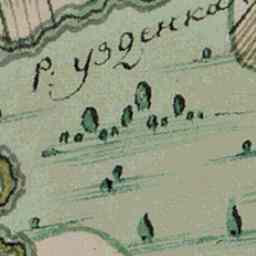 р: узденка